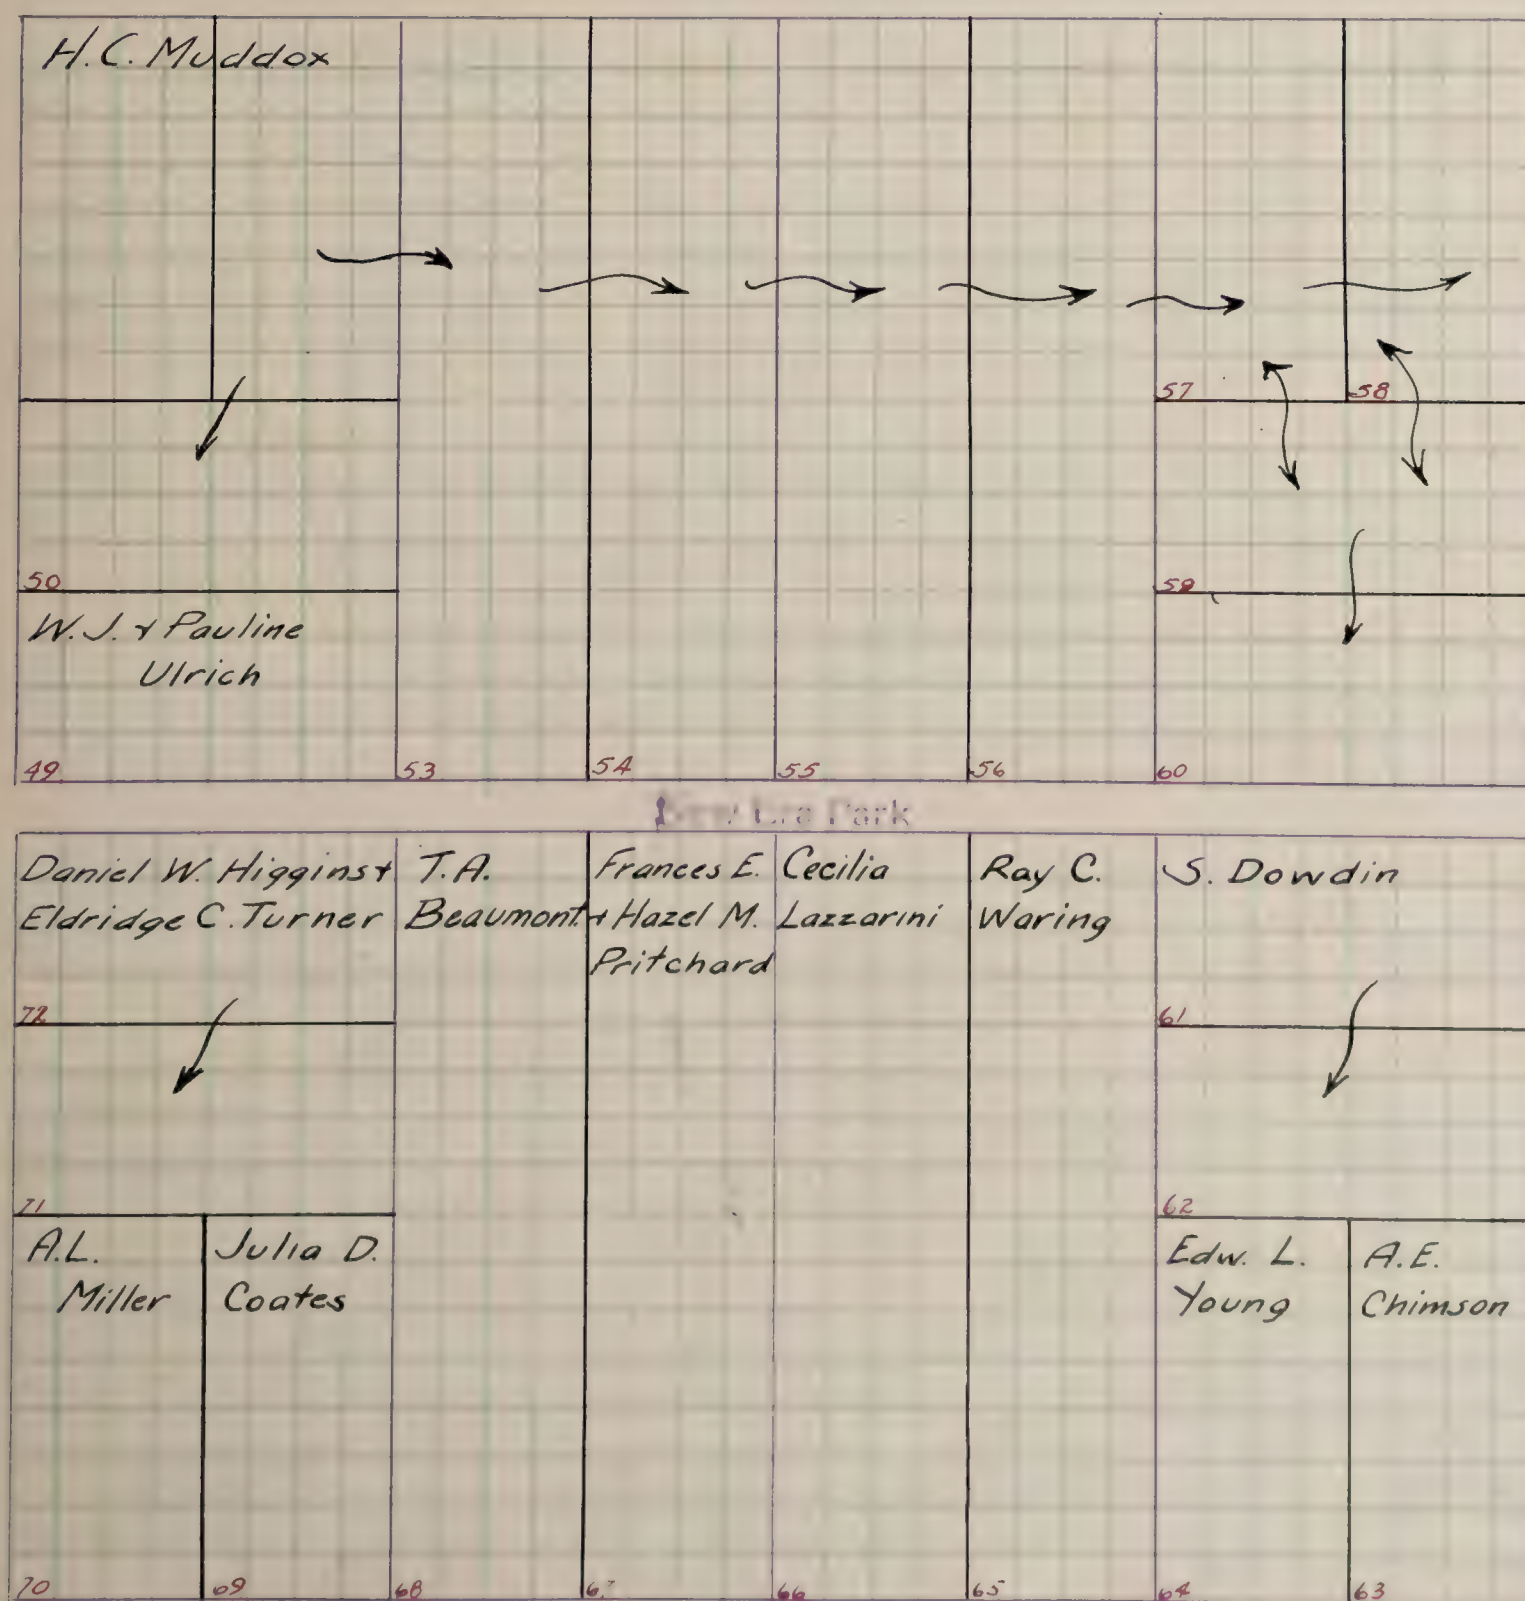 H.C. Muddox
57
58
50
59
W. J. & Pauline
Ulrich
49
53
54
55
56
60
New Era Park
Daniel W. Higgins &
Eldridge C. Turner
T.A.
Beaumont
Frances E.
& Hazel M.
Pritchard
Cecilia
Lazzarini
Ray C.
Waring
S. Dowdin
72
61
71
62
A.L.
Miller
Julia D.
Coates
Edw. L.
Young
A.E.
Chimson
70
69
68
67
66
65
64
63